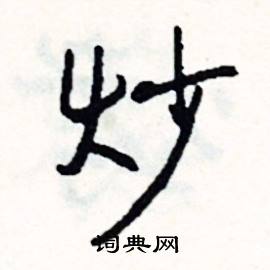 炒
词典网